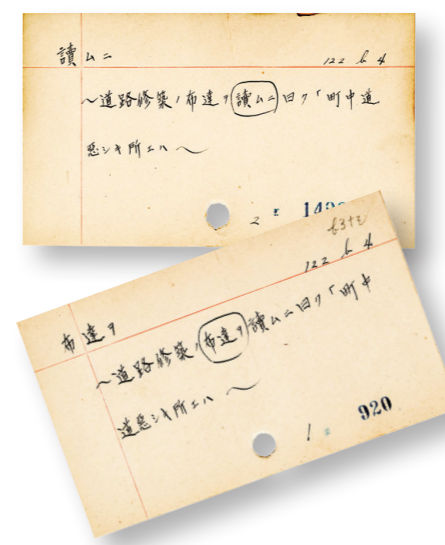 讀ムニ
122 6 4
〜道路修築ノ布達ヲ讀ムニ曰ク「町中道
惡シキ所エハ〜
2
122 6 4
布達ヲ
〜道路修築ノ布達ヲ讀ムニ曰ク「町中
道惡シキ所エハ〜
1
920